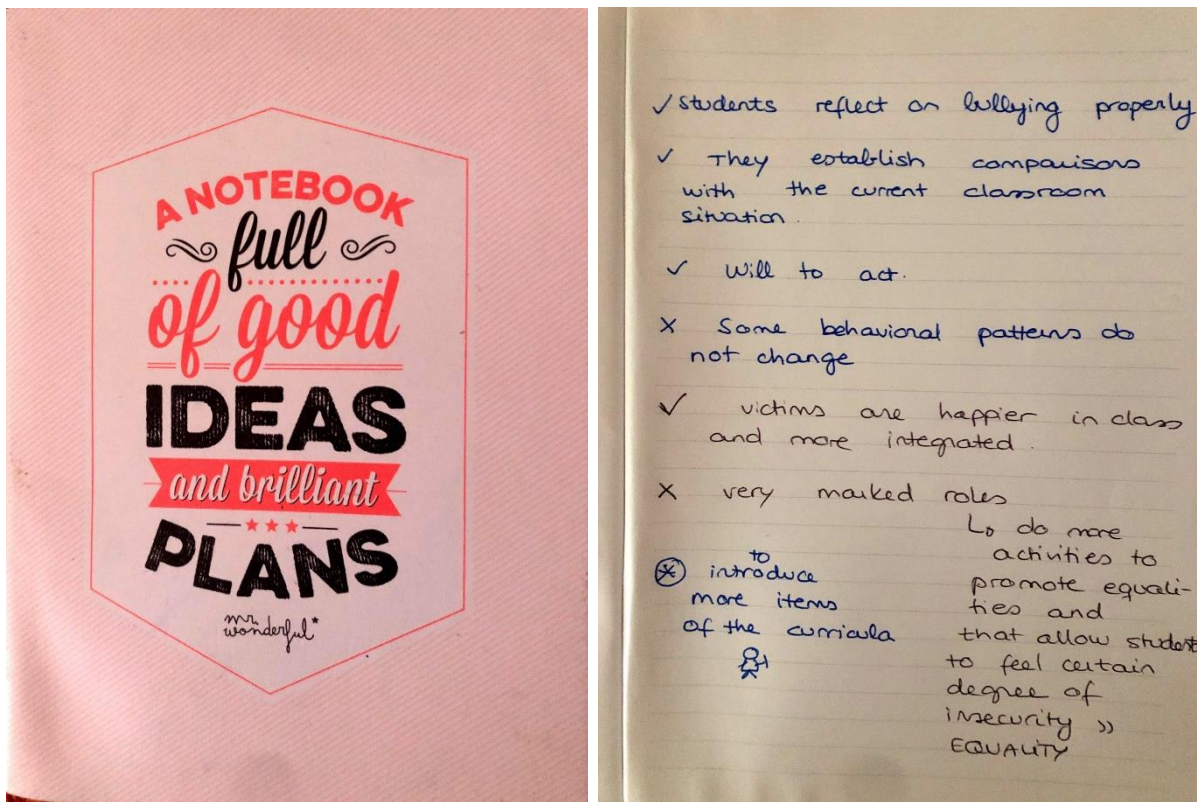 A NOTEBOOK
full
of good
IDEAS
and brilliant
PLANS
mr.
wonderful*
✓ students reflect on bullying properly
✓ They establish comparisons
with the current classroom
situation.
✓ Will to act.
X Some behavioral patterns do
not change
✓ victims are happier in class
and more integrated.
X very marked roles
↳ do more
activities to
promote equali-
ties and
that allow student
to feel certain
degree of
insecurity »
EQUALITY
⊛ to
introduce
more items
of the curricula